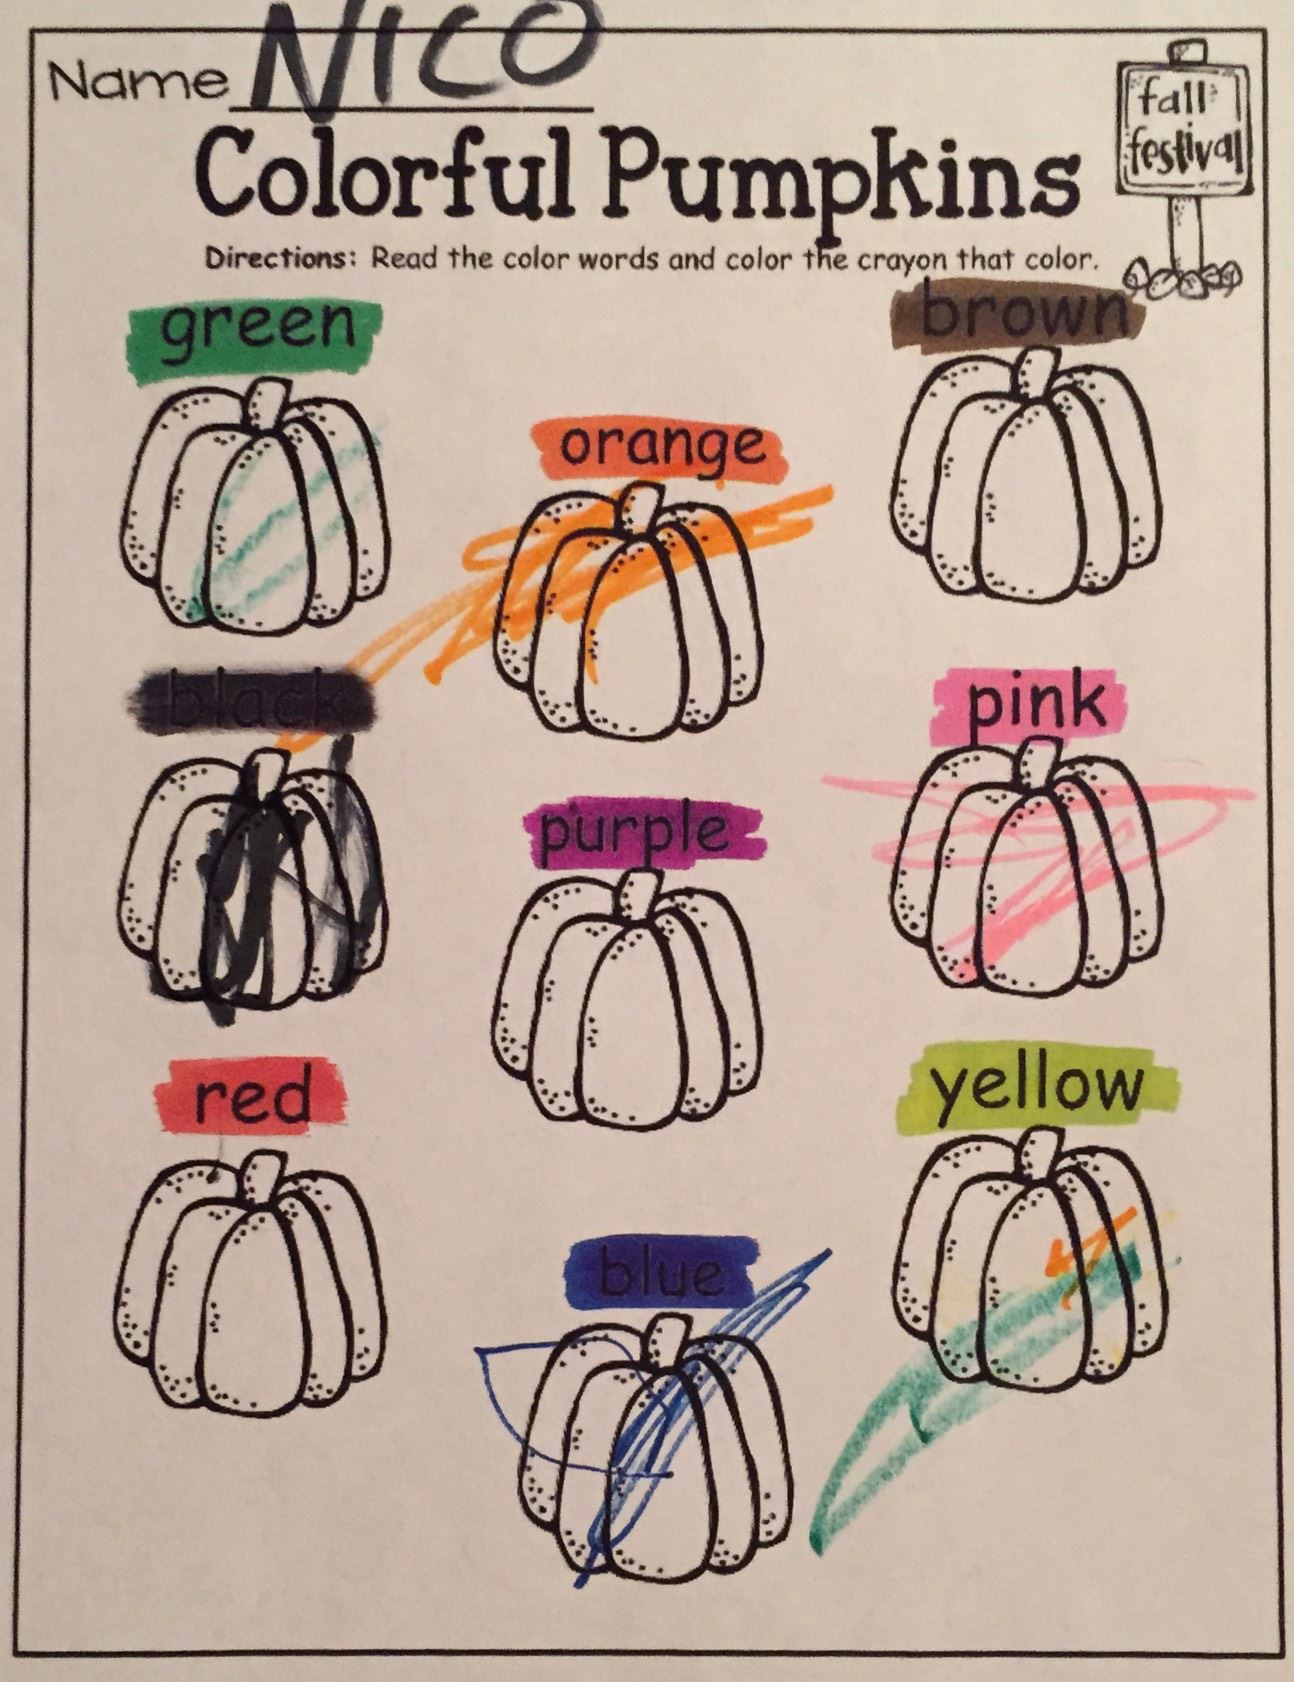 Name NICO
fall
festival
Colorful Pumpkins
Directions: Read the color words and color the crayon that color.
green
brown
orange
black
pink
purple
red
yellow
blue